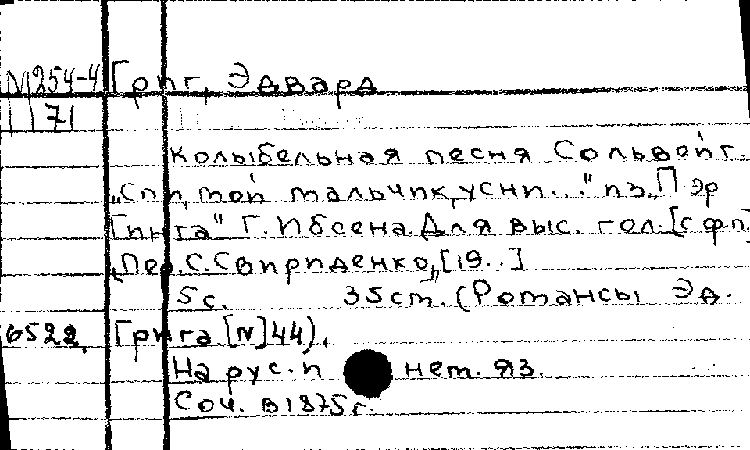 М254-4 Григ, Эдвард
71
Колыбельная песня Сольвейг.
„Спи, мой мальчик, усни..." из „Пэр
Гинта" Г. Ибсена. Для выс. гол. [с фп.
„Пер. С. Свириденко„ [19..]
5 с. 35 см. (Романсы Эд.
6522. Грига [N] 44).
На рус. и нем. яз.
Соч. в 1875 г.